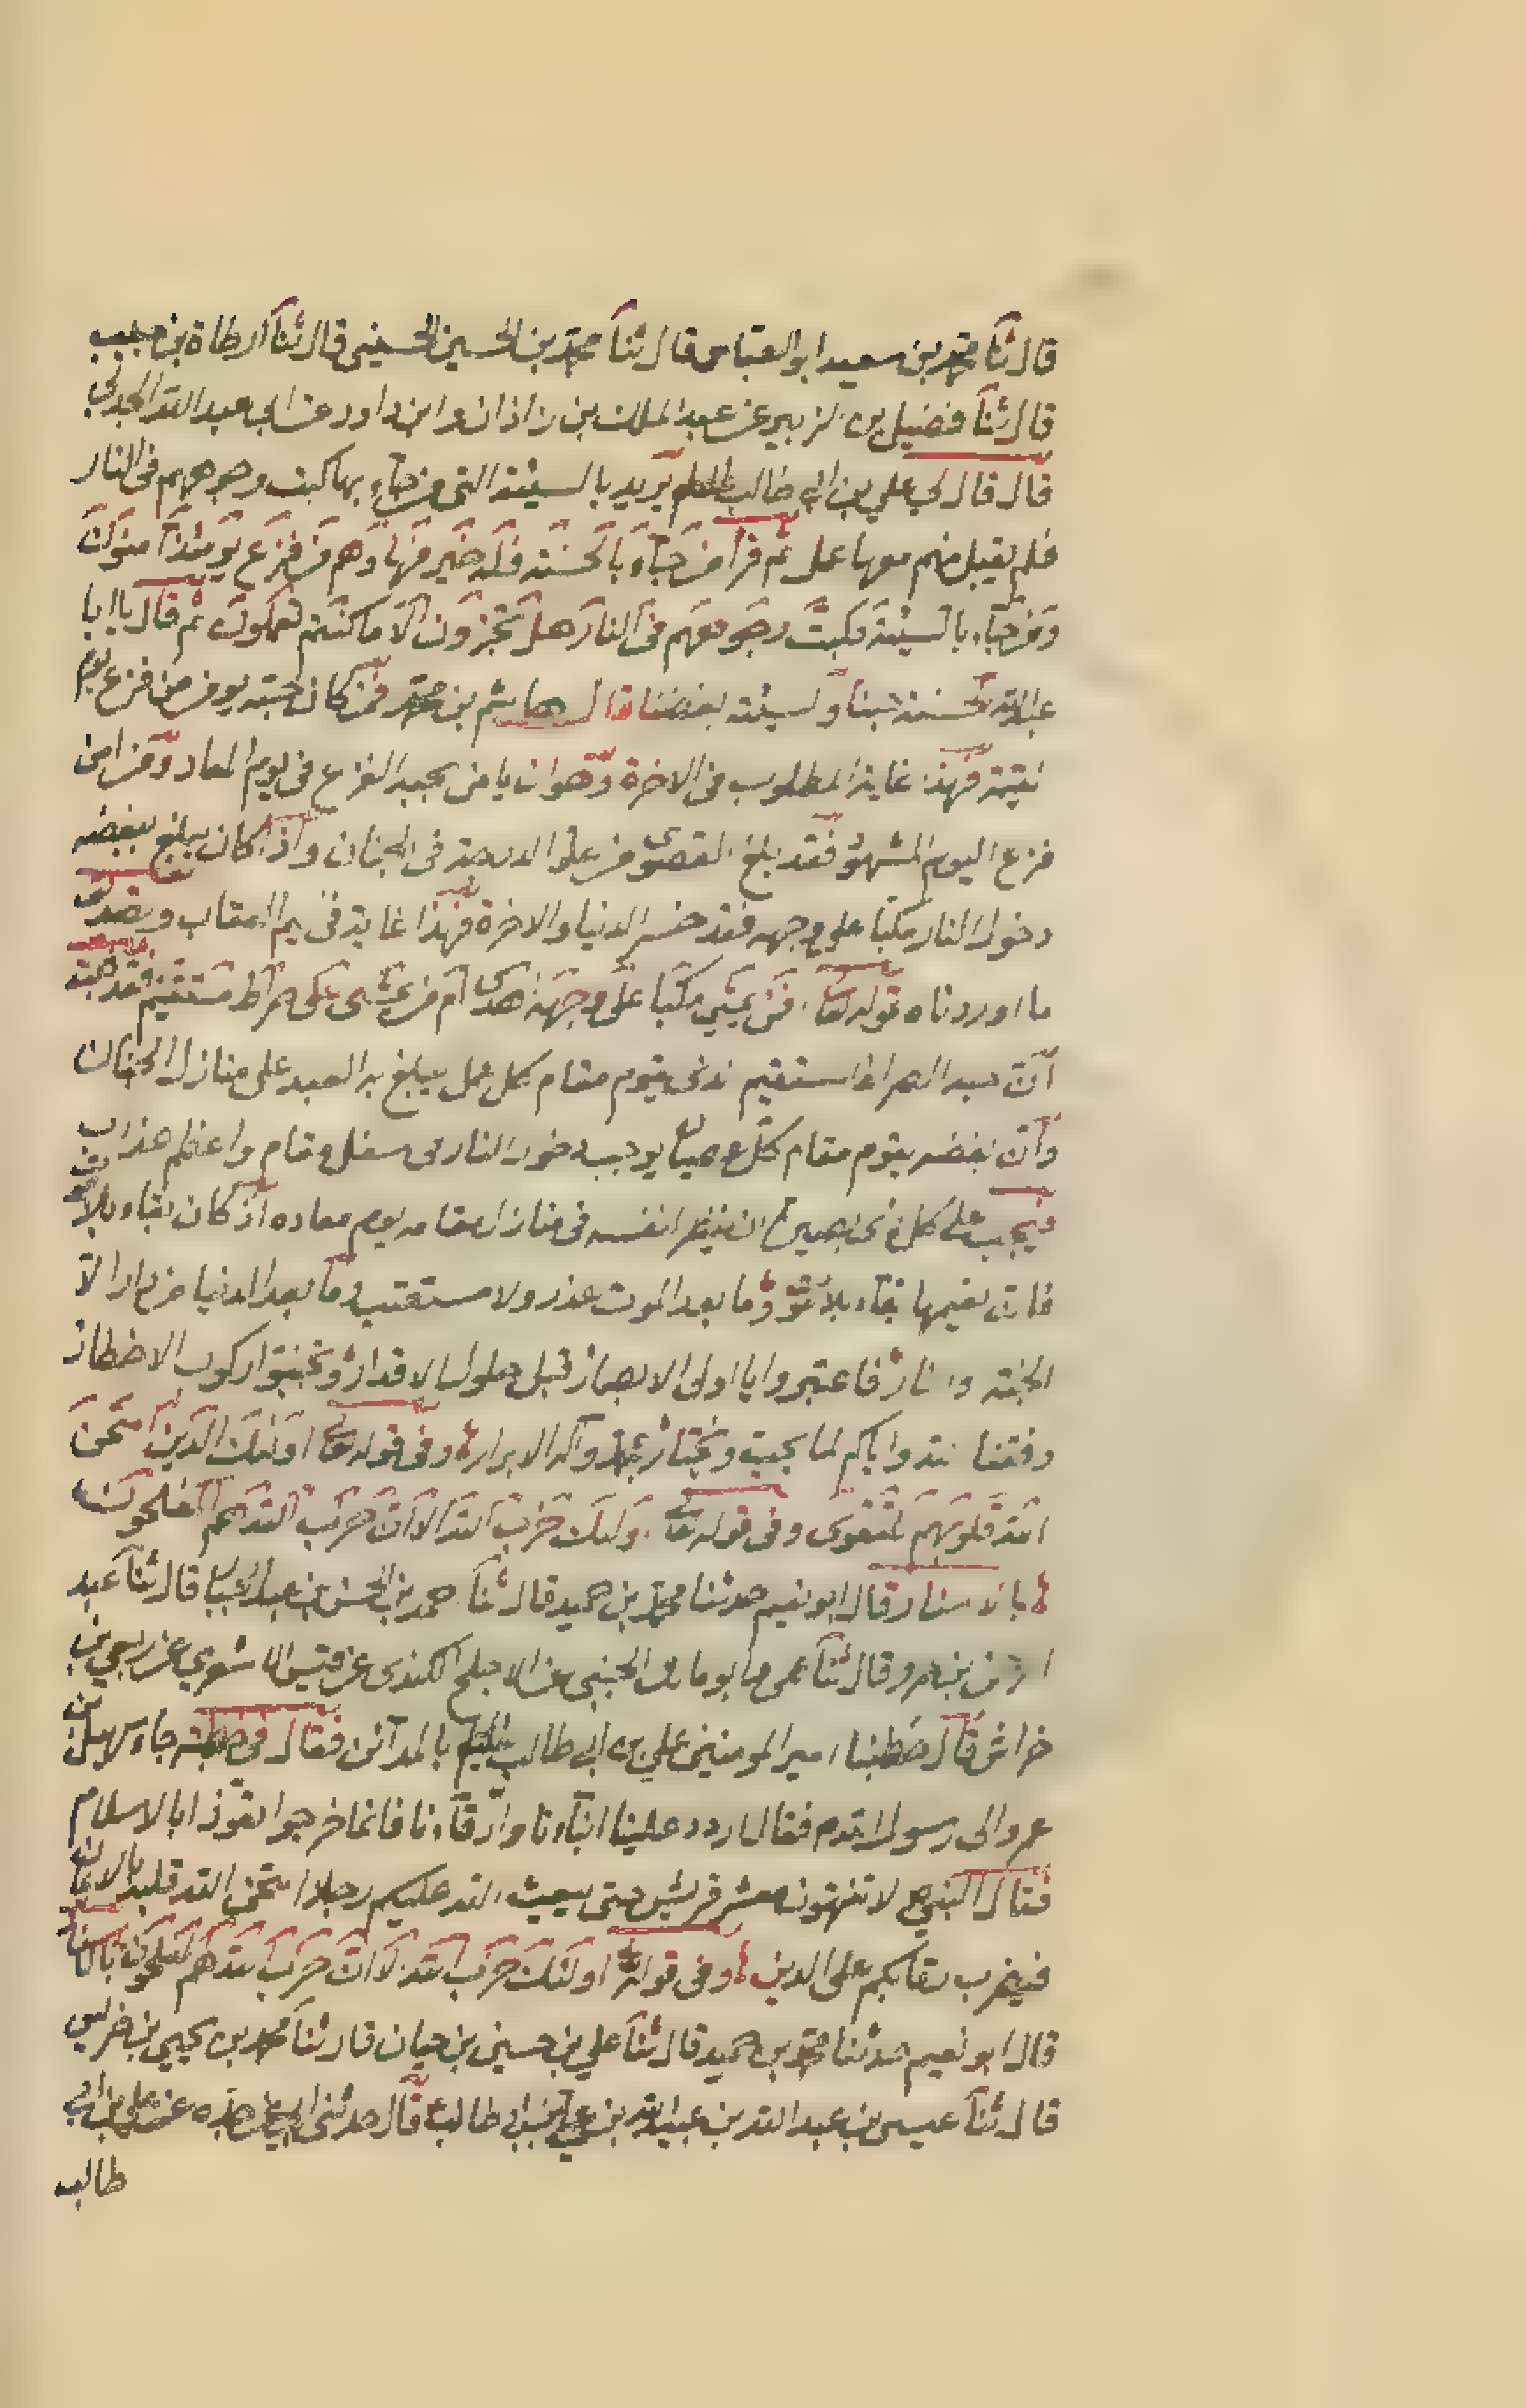 قال ثنا محمد بن سعيد ابو العباس قال ثنا محمد بن الحسين الحسيني قال ثنا ارطاة بن حبيب
قال ثنا فضيل بن الزبير عن عبد الملك بن زاذان وابن داود عن ابي عبد الله الجدلي
قال قال لي علي بن ابي طالب يريد بالسيئة التي من جاء بها كبت وجوههم في النار
فلم يقبل منهم معها عمل ثم قرأ من جاء بالحسنة فله خير منها وهم من فزع يومئذ امنون
ومن جاء بالسيئة فكبت وجوههم في النار هل تجزون الا ما كنتم تعملون ثم قال يا ابا
عبد الله الحسنة حبنا والسيئة بغضنا قال هاشم بن محمد فمن كان حبه يومن من فزع يوم
فهذا غاية المطلوب في الاخرة وهو ان يامن بحبه الفزع في يوم المعاد ومن امن
فزع اليوم المشهود فقد بلغ القصوى من علو الدرجة في الجنان واذا كان يبلغ ببغضه
دخول النار مكبا على وجهه فقد خسر الدنيا والاخرة فهذا غاية في اليم العقاب ويصدق
ما اوردناه قوله تعا افمن يمشي مكبا على وجهه اهدى ام من يمشي على صراط مستقيم فقد
ان حبه الصراط المستقيم الذي يقوم مقام كل عمل يبلغ به العبد على منازل الجنان
وان بغضه يقوم مقام كل عصيان يوجب دخول النار في سفل مقام واعظم عذاب
ويجب على كل ذي بصيرة ان ينظر لنفسه في منازل مقامه يوم معاده اذ كان بقاء بلا
فان نعيمها بقاء بلا وما بعد الموت عذر ولا مستعتب وما بعد الدنيا من دار الا
الجنة والنار فاعتبروا يا اولي الابصار قبل حلول الاقدار وتجنبوا ركوب الاخطار
وفقنا الله واياكم لما يحب ويختار بمحمد وآله الابرار وفي قوله تعا اولئك الذين امتحن
الله قلوبهم للتقوى وفي قوله تعا اولئك حزب الله الا ان حزب الله هم المفلحون
بالاسناد قال ابو نعيم حدثنا محمد بن حميد قال ثنا محمد بن الحسن بن عبد قال ثنا عبد
الرحمن بن عمرو قال ثنا عمي ابو مالك الجنبي عن الاجلح الكندي عن قيس الاشعري عن ربعي بن
خراش قال خطبنا امير المومنين علي بن ابي طالب بالمدائن فقال في خطبته جاء سهيل بن
عمرو الى رسول الله فقال اردد علينا ابناءنا وارقاءنا فانما خرجوا تعوذا بالاسلام
فقال النبي ص لا تنتهون معشر قريش حتى يبعث الله عليكم رجلا امتحن الله قلبه بالايمان
فيضرب رقابكم على الدين وفي قوله اولئك حزب الله الا ان حزب الله هم المفلحون بالاسناد
قال ابو نعيم حدثنا محمد بن حميد قال ثنا علي بن حسين بن حيان قال ثنا محمد بن يحيى بن ضريس
قال ثنا عيسى بن عبد الله بن عبيد الله بن علي بن ابي طالب قال حدثني ابي عن جده عن علي بن ابي
طالب